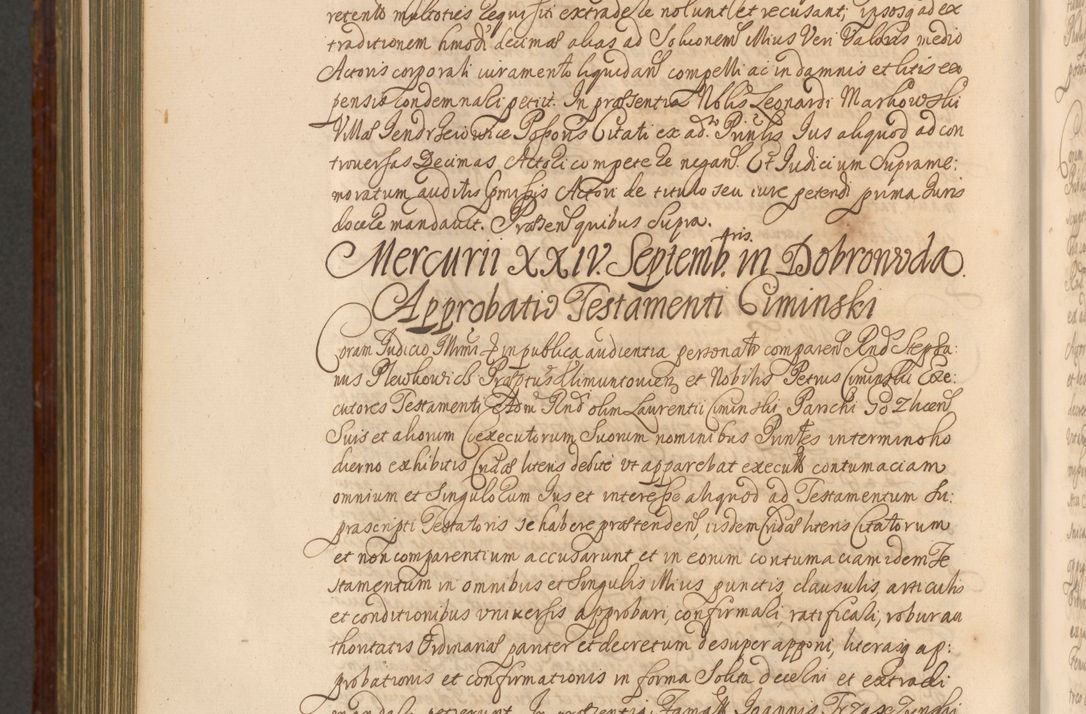 retento multoties requisiti extradere nolunt et recusant, ipsosq ad ex
traditionem hmodi decimas alias ad Soluonem illius Veri Valoris medio
Actoris corporali iuramento liquidan compelli ac in damnis et litis ex
pensis condemnari petiit. In præsentia Nobilis Leonardi Markowski
Villæ Jendrzeiowice Possoris Citati ex adto Prinlis Jus aliquod ad con
troversas Decimas Actori competere negan. Et Judicium Suprame:
moratum auditis Præmissis Actori de titulo seu iure petendi prima Juris
docere mandavit. Præsen quibus Supra.
Mercurii XXIV. Septembris in Dobrowoda.
Approbatio Testamenti Ciminski
Coram Judicio Illmi & in publica audientia personalr comparen Rnds Stepha:
nus Plewkowicz Præptus Klimuntovien et Nobilis Petrus Ciminski Exe:
cutores Testamenti Adm Rnd olim Laurentii Ciminski, Parchi Gozlicen
Suis et aliorum Coexecutorum Suorum nominibus Printes in termino ho
dierno ex hibitis Cridæ literis debite ut apparebat executis contumaciam
omnium et Singulorum Jus et interesse aliquod ad Testamentum Su:
prascripti Testatoris se habere prætenden, iisdem Cridæ literis Citatorum
et non comparentium accusarunt et in eorum contumaciam idem Te
stamentum in omnibus et Singulis illius punctis, clausulis, articulis
et conditionibus universis approbari, confirmari, ratificari, robur au
thoritatis Ordinariæ pariter et decretum desuper apponi, literasq ap:
probationis et confirmationis in forma Solita decerni et extradi
mandari petierunt. In præsentia Famati Joannis